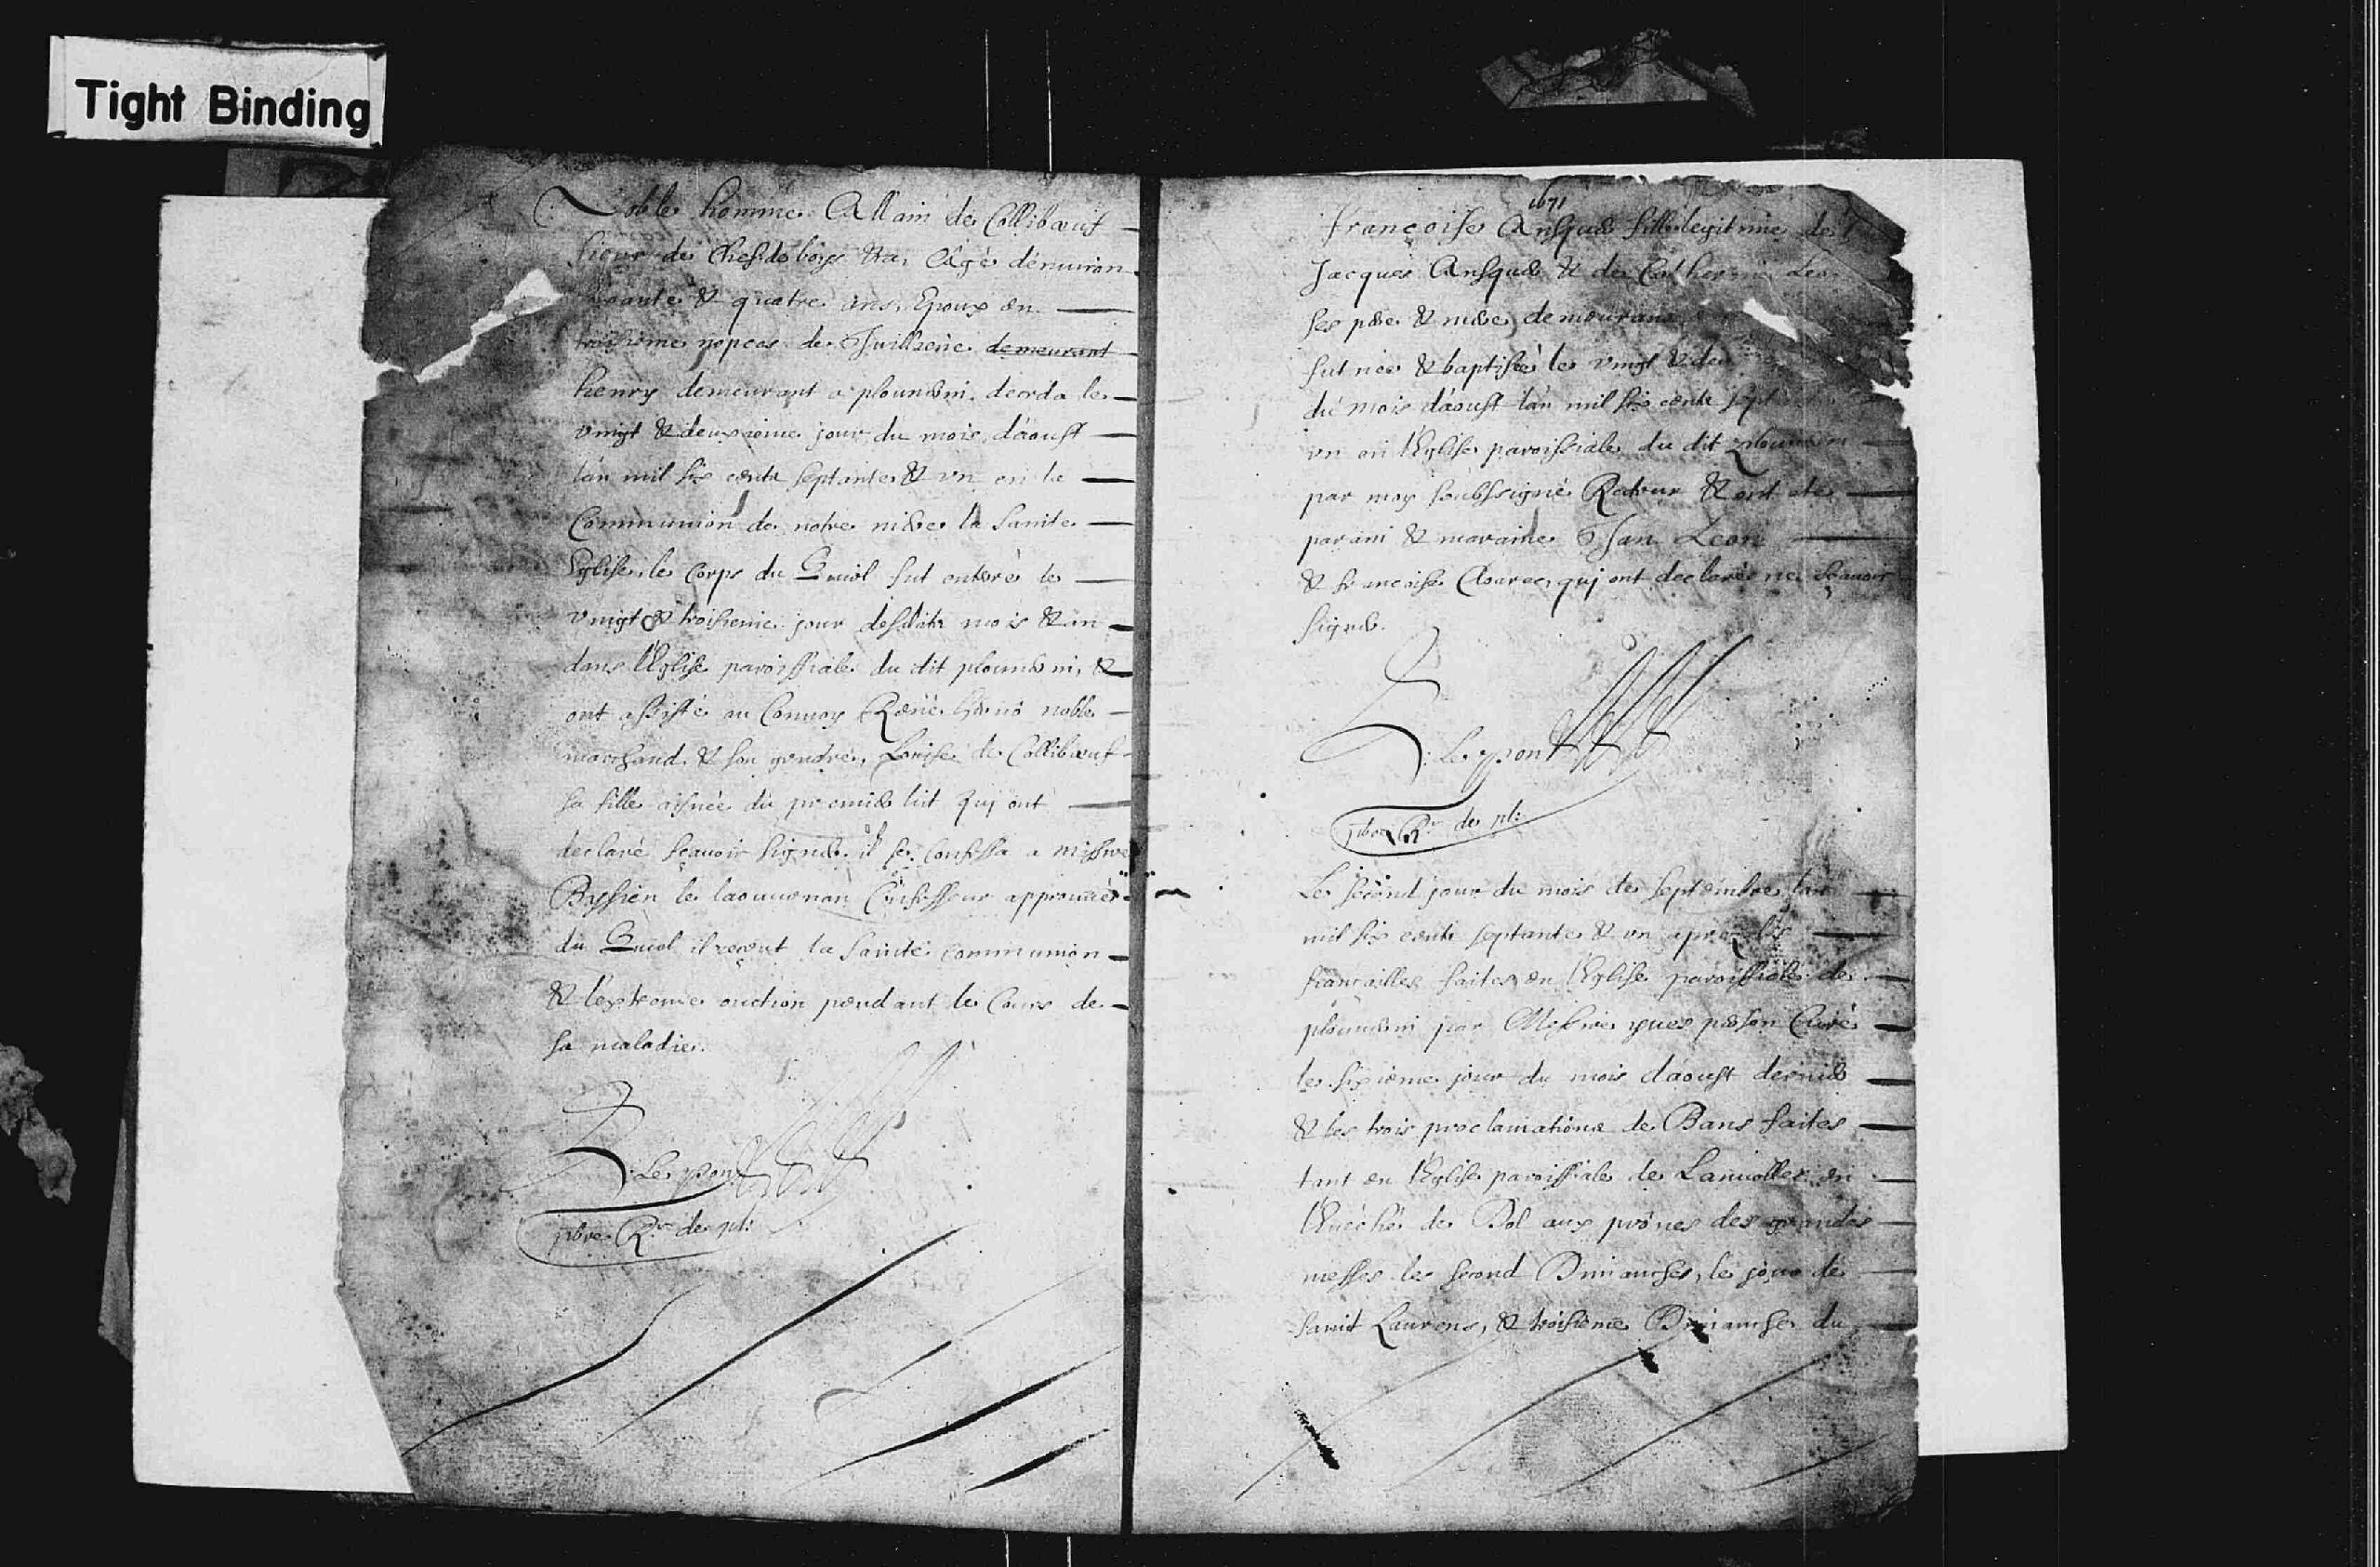 Tight Binding
Noble homme Allain de Colliboeuf
sieur de Chefdeboys &ca, Agé denuiron
& quatre ans, Epoux en
troisieme nopces de Juillzene demeurant
henry demeurant a plounerin, deceda le
vingt & deuxieme jour du mois d'aoust
l'an mil six cents septante & vn en la
Communion de notre mère la Sainte
Eglise, le Corps du Quiel fut enterré le
vingt & troisieme jour desdits mois & an
dans l'Eglise paroissiale du dit plounerin, &
ont assisté au Conuoy Renë noble
marchand & son gendre, Louise de Colliboeuf
sa fille aisnée du premier lict Quj ont
declaré scauoir signer. il se Confessa a missire
Bryssien le laouuenan Confesseur approuué
du Quiel il receut la Sainte Communion
& l'extreme onction pendant le Cours de
sa maladie.
: Le pon
pbre Rr de pl:
1671
Françoise Ansquer fille legitime de
Jacques Ansquer & de Catherine Leon
ses père & mère, demeurans
fut née & baptisée le vingt & deu
du mois d'aoust l'an mil six cents sept
vn en l'Eglise paroissiale du dit plounerin
par moy soubssigné Recteur & ont eté
parain & maraine Jan Leon
& françoise qui ont declaré ne scauoir
signer.
: Le pont
pbre Rr de pl:
Le second jour du mois de septembre l'an
mil six cents septante & vn apres les
fiancailles faites en l'Eglise paroissiale de
plounerin par Messire yues person Curé
le sixieme jour du mois d'aoust dernier
& les trois proclamations de Bans faites
tant en l'Eglise paroissiale de Lanuollec en
l'Euéché de Dol aux prônes des grandes
messes le second Dimanche, le jour de
saint Laurens, & troisieme Dimanche du